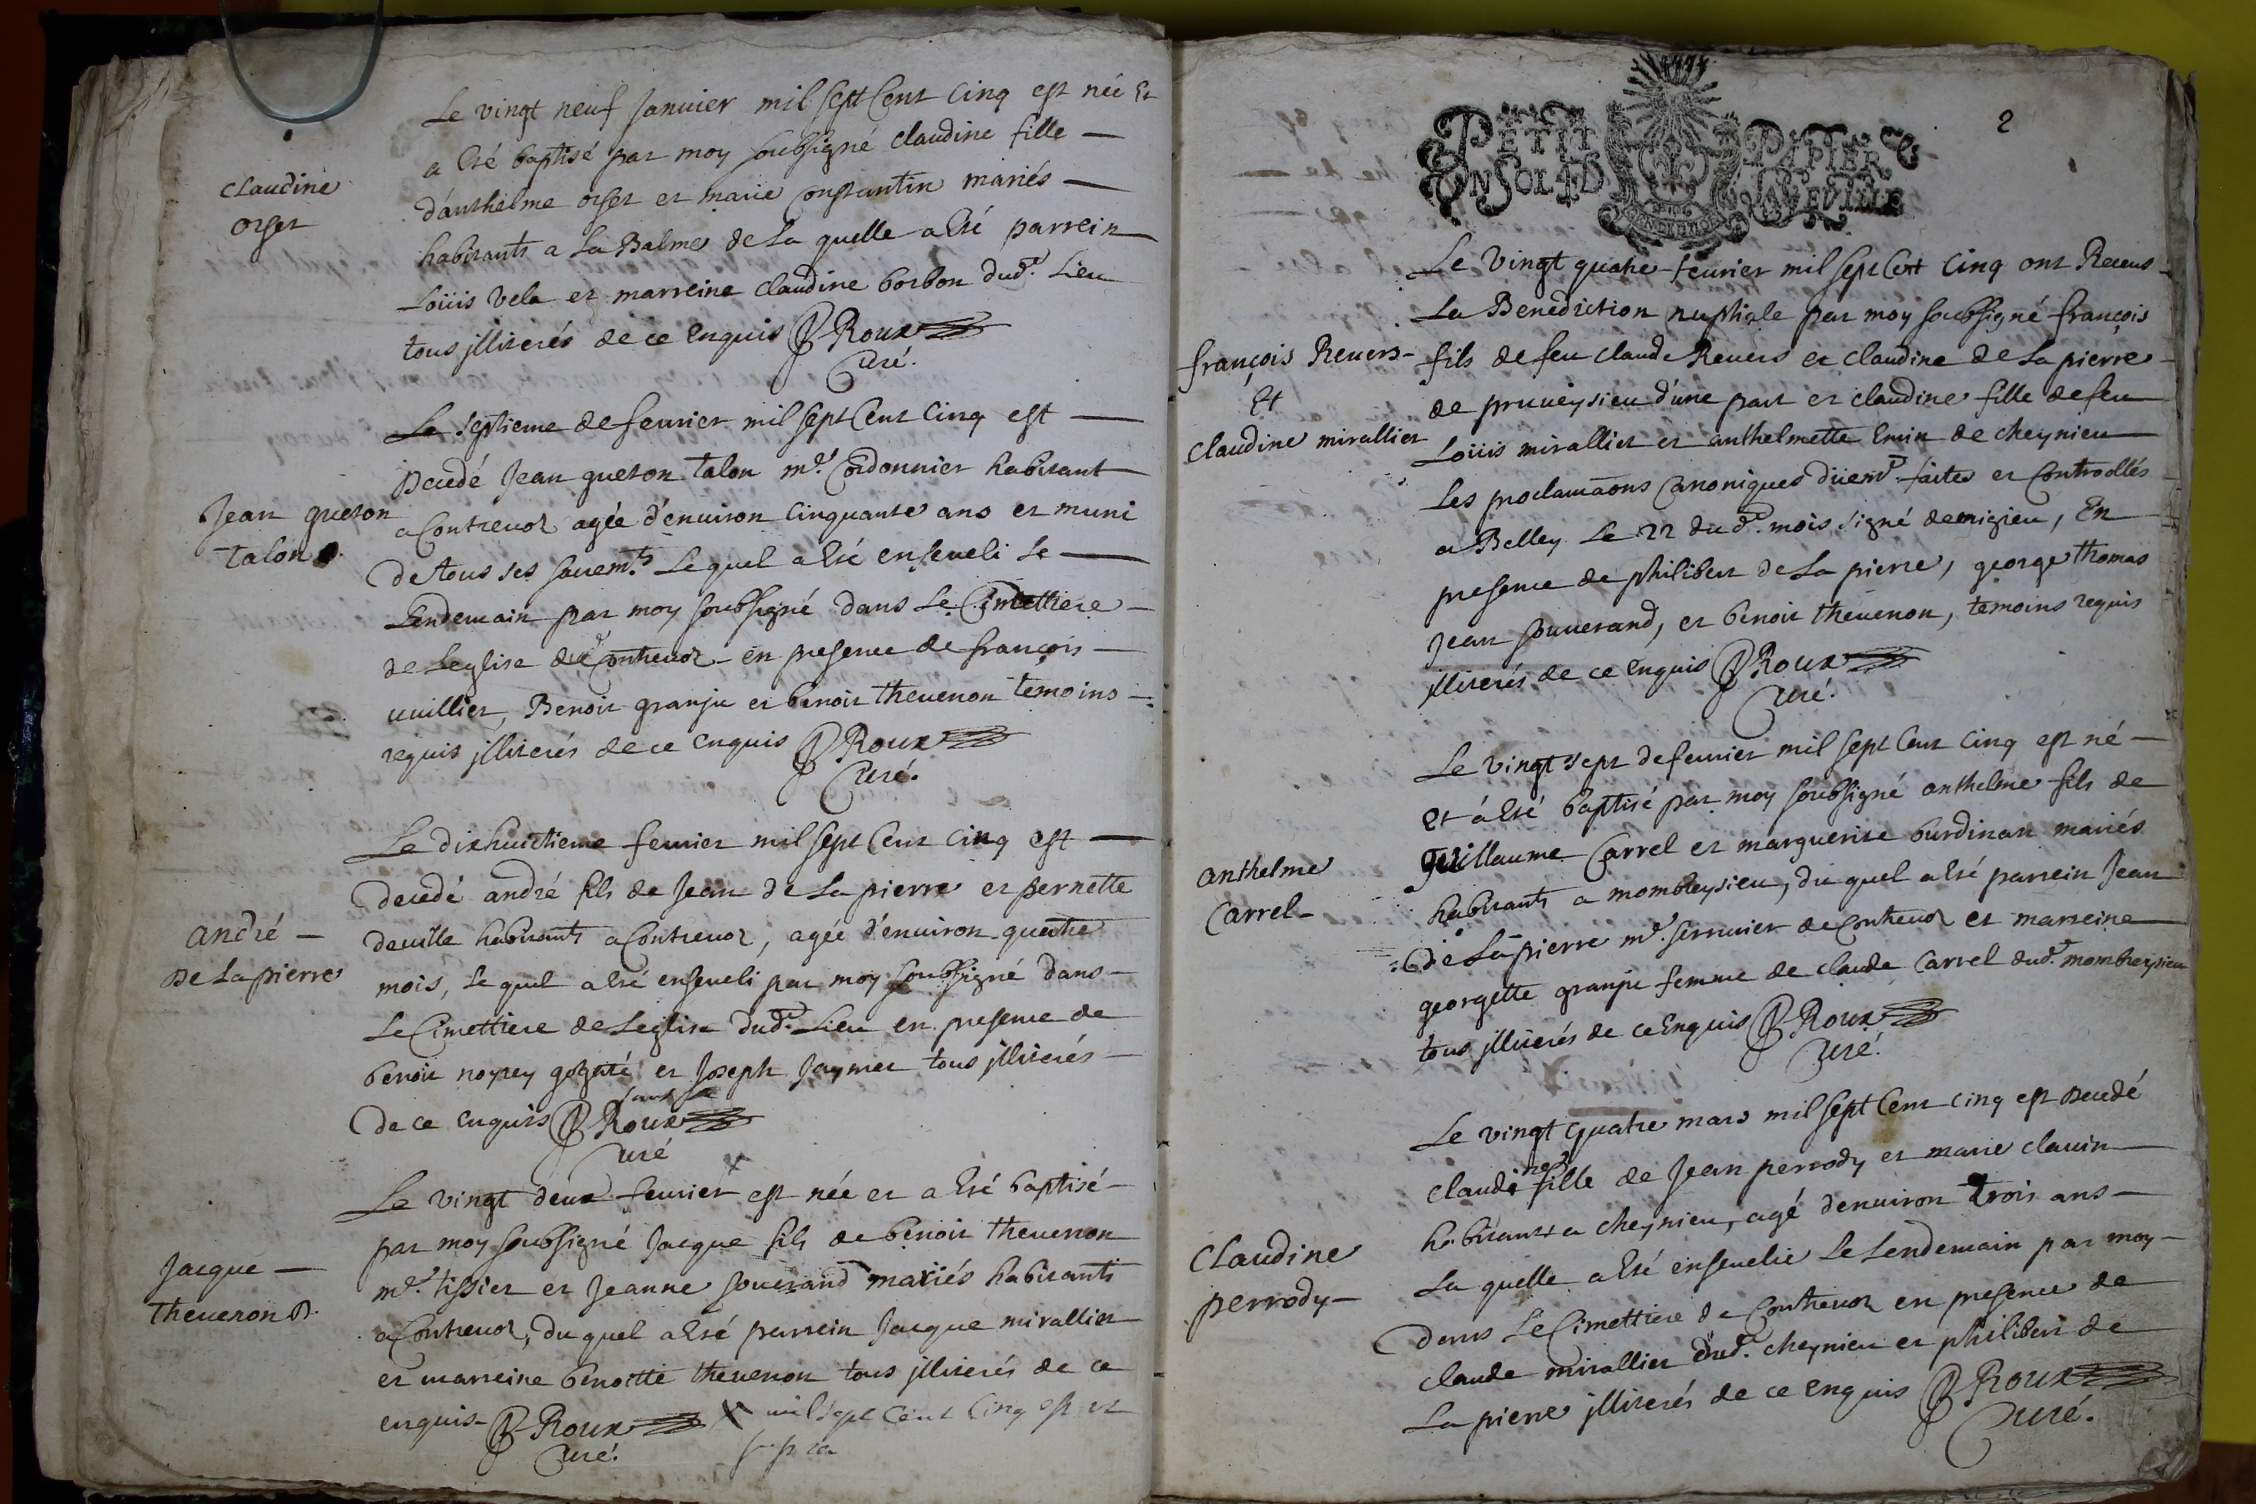 Le vingt neuf Janvier mil sept Cent cinq est née Et
a Eté baptisé par moy soubsigné claudine fille
claudine
orset
d'anthelme orset et marie constantin mariés
habitants a La Balme de La quelle a Eté parrein
Loüis vela et marreine claudine borbon dud.t Lieu
tous jlliterés de ce enquis Roux
Curé.
Le septieme de fevrier mil sept Cent cinq est
Decedé Jean gueton talon m.e Cordonnier habitant
Jean gueton
talon
a Contrevoz agée d'environ cinquante ans et muni
de tous ses sacrem.ts Le quel a Eté enseveli le
Lendemain par moy soubsigné dans Le Cimettiere
de Leglise de Contrevoz en presence de françois
vuillier, Benoit granju et benoit thevenon temoins
requis jlliterés de ce enquis Roux
Curé.
Le dixhuictieme fevrier mil sept Cent cinq est
Decedé andré fils de Jean de La pierre et pernette
andré
De La pierre
deville habitants a Contrevoz, agée d'environ quatre
mois, Le quel a Eté enseveli par moy soubsigné dans
Le Cimettiere de Leglise dud.t Lieu en presence de
benoit noyrey et Joseph Jaymet tous jlliterés
De ce enquis Roux
Curé
Le vingt deux fevrier est née et a Eté baptisé
par moy soubsigné Jacque fils de benoit thevenon
Jacque
thevenon
m.e tissier et Jeanne souverand mariés habitants
a Contrevoz, du quel a Eté parrein Jacque mirallier
et marreine benoitte thevenon tous jlliterés de ce
enquis Roux x mil sept Cent Cinq
Curé.
2
PETIT PAPIER
UN SOL 4 D LA FEUILLE
Le vingt quatre fevrier mil sept Cent cinq ont Receus
La Benediction nuptiale par moy soubsigné françois
françois Revers
Et
claudine mirallier
fils de feu claude Revers et claudine de La pierre
de pruveysieu d'une part et claudine fille de feu
Loüis mirallier et anthelmette Emin de cheynieu
Les proclamaons Canoniques düem.t faites et Controollés
a Belley Le 22 dud.t mois signé demigieu, En
presence de philibert de La pierre, george thomas
Jean souverand, et benoit thevenon, temoins requis
jlliterés de ce enquis Roux
Curé.
Le vingt sept de fevrier mil sept Cent cinq est né
et á Eté baptisé par moy soubsigné anthelme fils de
anthelme
Carrel
guillaume Carrel et marguerite burdinat mariés
habitants a montbreysieu, du quel a Eté parrein Jean
De La pierre m.e serrurier de Contrevoz et marreine
georgette granju femme de claude Carrel dud.t montbreysieu
tous jlliterés de ce Enquis Roux
Curé.
Le vingt quatre mars mil sept Cent cinq est Decedé
claudine fille de Jean perrody et marie clavin
Claudine
perrody
habitants a cheynieu, agé denviron trois ans
La quelle a Eté ensevelie Le Lendemain par moy
dans Le Cimettiere de Contrevoz en presence de
claude mirallier dud.t cheynieu et philibert de
La pierre jlliterés de ce Enquis Roux
Curé.